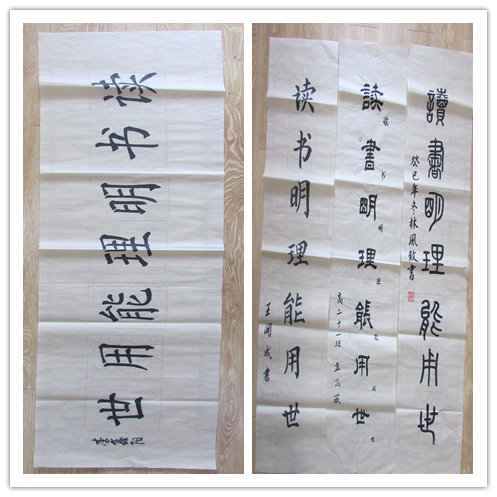 读书明理能用世
讀書明理能用世
癸巳年冬林凤致書
读书明理能用世
讀書明理能用世
高二十一班
读书明理能用世